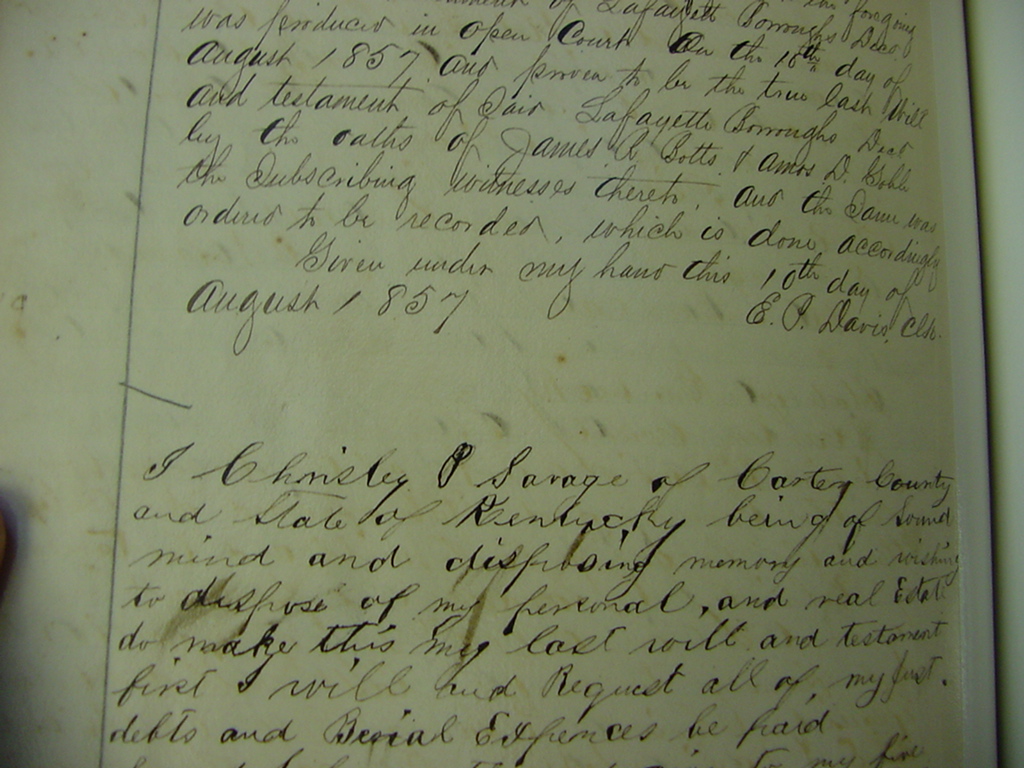 of Lafayett Borroughs Decd
was produced in open Court on the 10th day of
August 1857 and proven to be the true last Will
and testament of Said Lafayette Borroughs Decd
by the oaths of James R Botts & Amos D. Goble
the Subscribing witnesses thereto, and the Same was
ordered to be recorded, which is done accordingly
Given under my hand this 10th day of
August 1857
E. P. Davis, Clk.
I Chrisley P Savage of Carter County
and State of Kentucky being of Sound
mind and disposing memory and wishing
to dispose of my personal, and real Estate
do make this my last will and testament
first I will and Request all of, my just.
debts and Berial Expences be paid
to my five